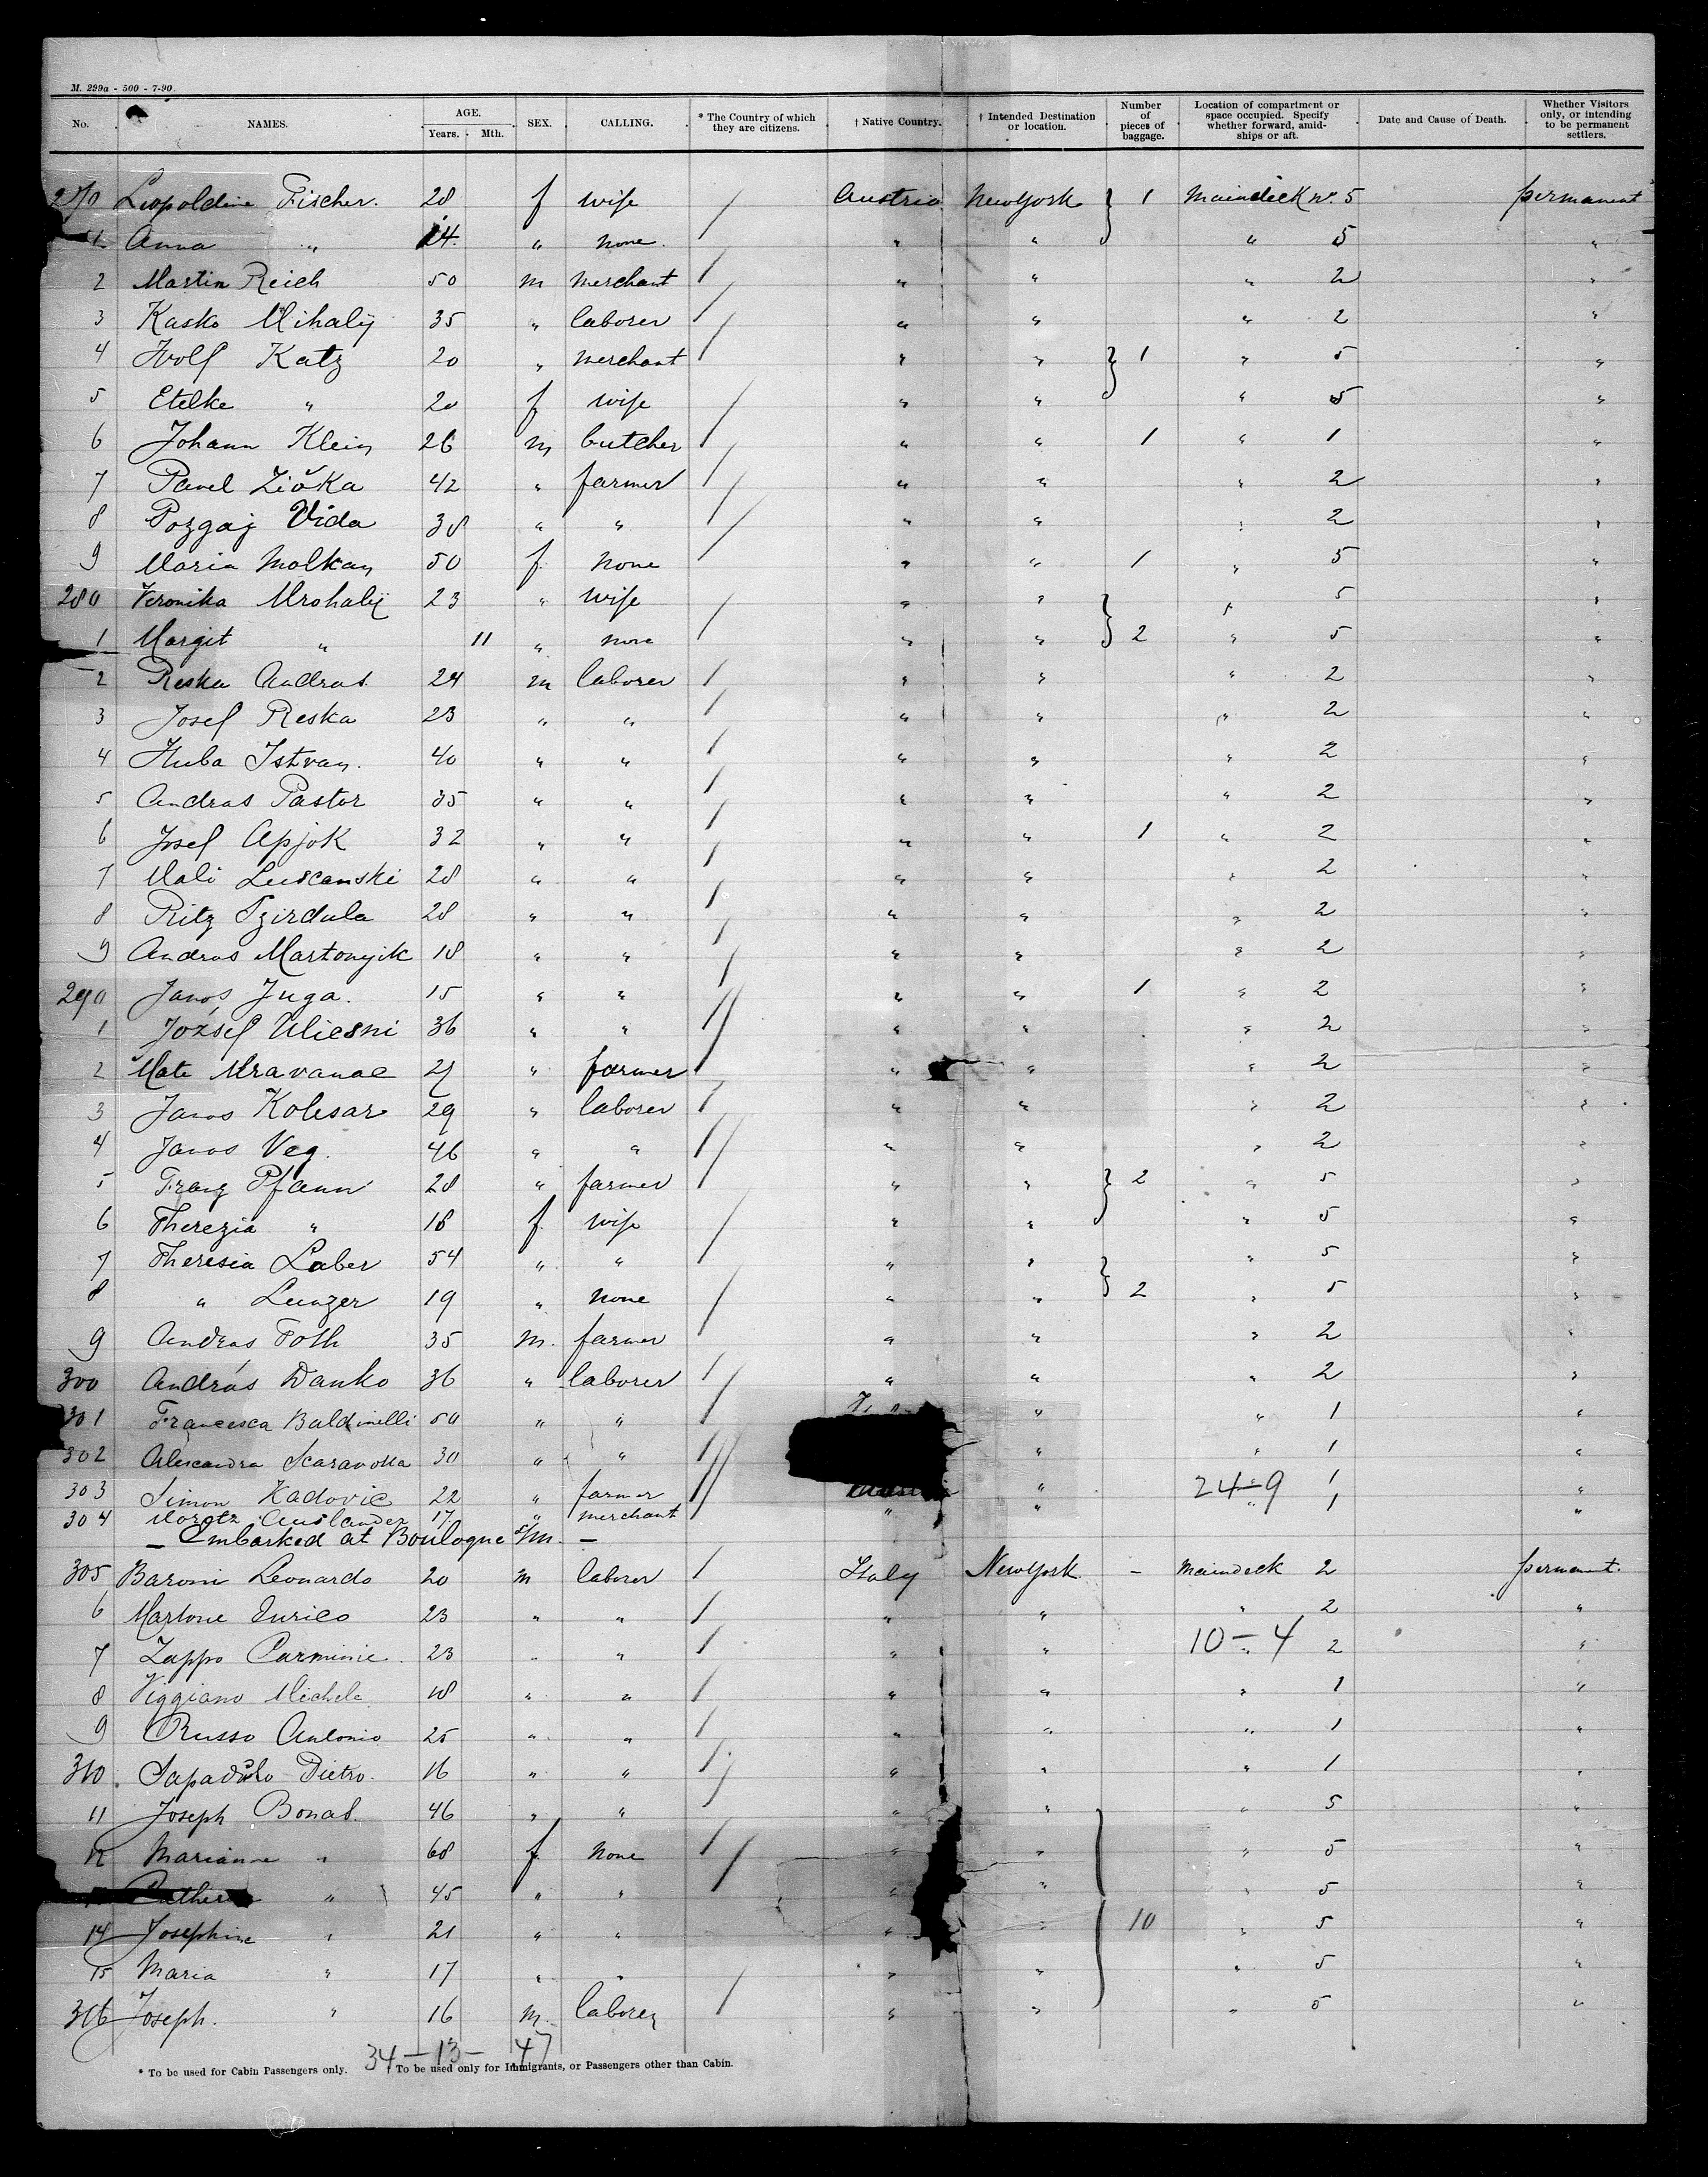 M. 299a - 500 - 7-90.
No. NAMES. AGE. Years. Mth. SEX. CALLING. * The Country of which they are citizens. † Native Country. † Intended Destination or location. Number of pieces of baggage. Location of compartment or space occupied. Specify whether forward, amidships or aft. Date and Cause of Death. Whether Visitors only, or intending to be permanent settlers.
270 Leopoldine Fischer. 28 f wife / Austria New York } 1 Maindeck Nr. 5 permanent
1 Anna " 14. " none. " " " 5 "
2 Martin Reich 50 m merchant / " " " 2 "
3 Kasko Mihalÿ 35 " laborer / " " " 2 "
4 Wolf Katz 20 " merchant / " " } 1 " 5 "
5 Etelke " 20 f wife / " " " 5 "
6 Johann Klein 26 m butcher / " " 1 " 1 "
7 Pavel Zička 42 " farmer / " " " 2 "
8 Pozgaj Vida 38 " " / " " " 2 "
9 Maria Molkan 50 f none / " " 1 " 5 "
280 Veronika Mrohalÿ 23 " wife " " } " 5 "
1 Margit " 11 " none / " " 2 " 5 "
2 Reska Andras 24 m laborer / " " " 2 "
3 Josef Reska 23 " " / " " " 2 "
4 Huba Istvan. 40 " " / " " " 2 "
5 Andras Pastor 35 " " / " " " 2 "
6 Josef Apjok 32 " " / " " 1 " 2 "
7 Mali 28 " " / " " " 2 "
8 28 " " / " " " 2 "
9 Andras Martonyik 18 " " / " " " 2 "
290 Janos Juga. 15 " " / " " 1 " 2 "
1 József Uliesni 36 " " / " " " 2 "
2 Mate Mravanac 27 " farmer / " " " 2 "
3 Janos Kolesar 29 " laborer / " " " 2 "
4 Janos Veg. 46 " " / " " " 2 "
5 Franz Pfann 28 " farmer / " " } 2 " 5 "
6 Therezia " 18 f wife " " " 5 "
7 Theresia Laber 54 " " / " " } " 5 "
8 " Lunzer 19 " none " " 2 " 5 "
9 Andras Toth 35 m. farmer / " " " 2 "
300 András Danko 36 " laborer / " " " 2 "
301 Francesca Baldinelli 50 " " / " " 1 "
302 Alescandra 30 " " / " " 1 "
303 Simon Kadovic 22 " farmer / " 24-9 " 1 "
304 Moretz Auslander 17 " merchant / " " " 1 "
— Embarked at Boulogne s/m. —
305 Baroni Leonardo 20 m laborer / Italy New York. - Maindeck 2 permanent.
6 Martone Enrico 23 " " / " " " 2 "
7 Zappo Carminie. 23 " " / " " 10-4 " 2 "
8 Viggiano Michele 18 " " / " " " 1 "
9 Russo Antonio 25 " " / " " " 1 "
310. Pietro. 16 " " / " " " 1 "
11 Joseph Bonas. 46 " " / " " " 5 "
12 Marianne " 68 f none / " " " 5 "
" 45 " " / " " " 5 "
14 Josephine " 21 " " " " 10 " 5 "
15 Maria " 17 " " " " " 5 "
316 Joseph. " 16 m. laborer / " " " 5 "
34-13-47
* To be used for Cabin Passengers only. To be used only for Immigrants, or Passengers other than Cabin.